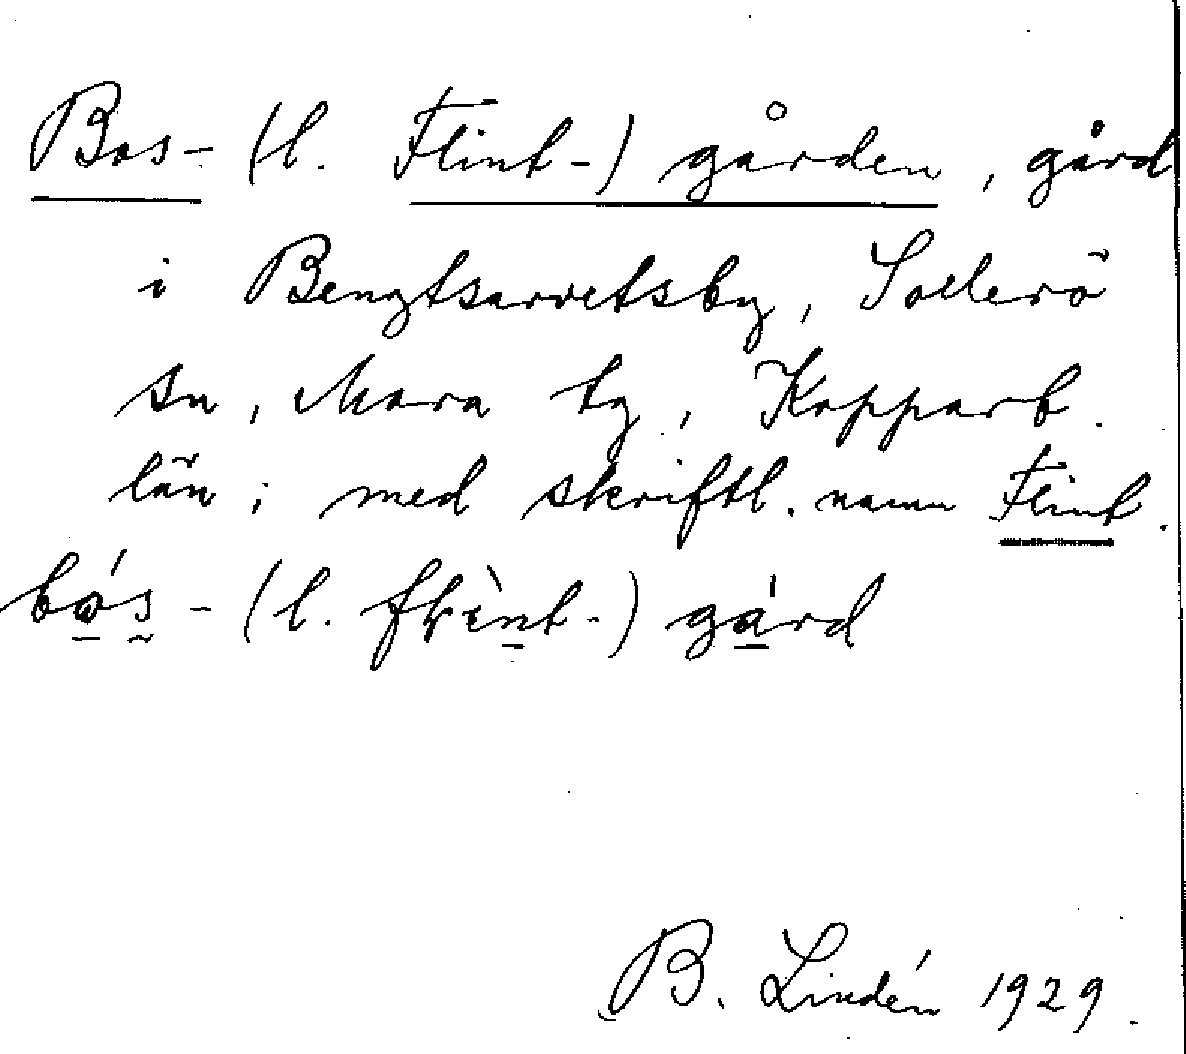 Bos- (l. Flint-) gården, gård
i Bengtsarvetsby, Sollerö
sn, Mora tg, Kopparb.
län; med skriftl. namn Flint.
bó̲s̰- (l. flìn̲t-) ga̲̍rd
B. Lindén 1929.